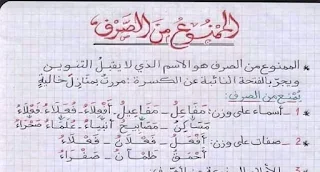 الممنوع من الصرف
* الممنوع من الصرف هو الاسم الذي لا يقبل التنوين
ويجرّ بالفتحة النائبة عن الكسرة: مررت بمنازل خالية
يُمنع من الصرف:
1 - أسماء على وزن: مَفَاعِل - مَفَاعِيل - أَفْعِلَاء - فُعَلَاء - فَعْلَاء
مَسَاكِن - مَصَابِيح - أَنْبِيَاء - عُلَمَاء - صَحْرَاء
2 - صفات على وزن: أَفْعَل - فَعْلَان - فَعْلَاء
أَحْمَق - ظَمْآن - صَفْرَاء